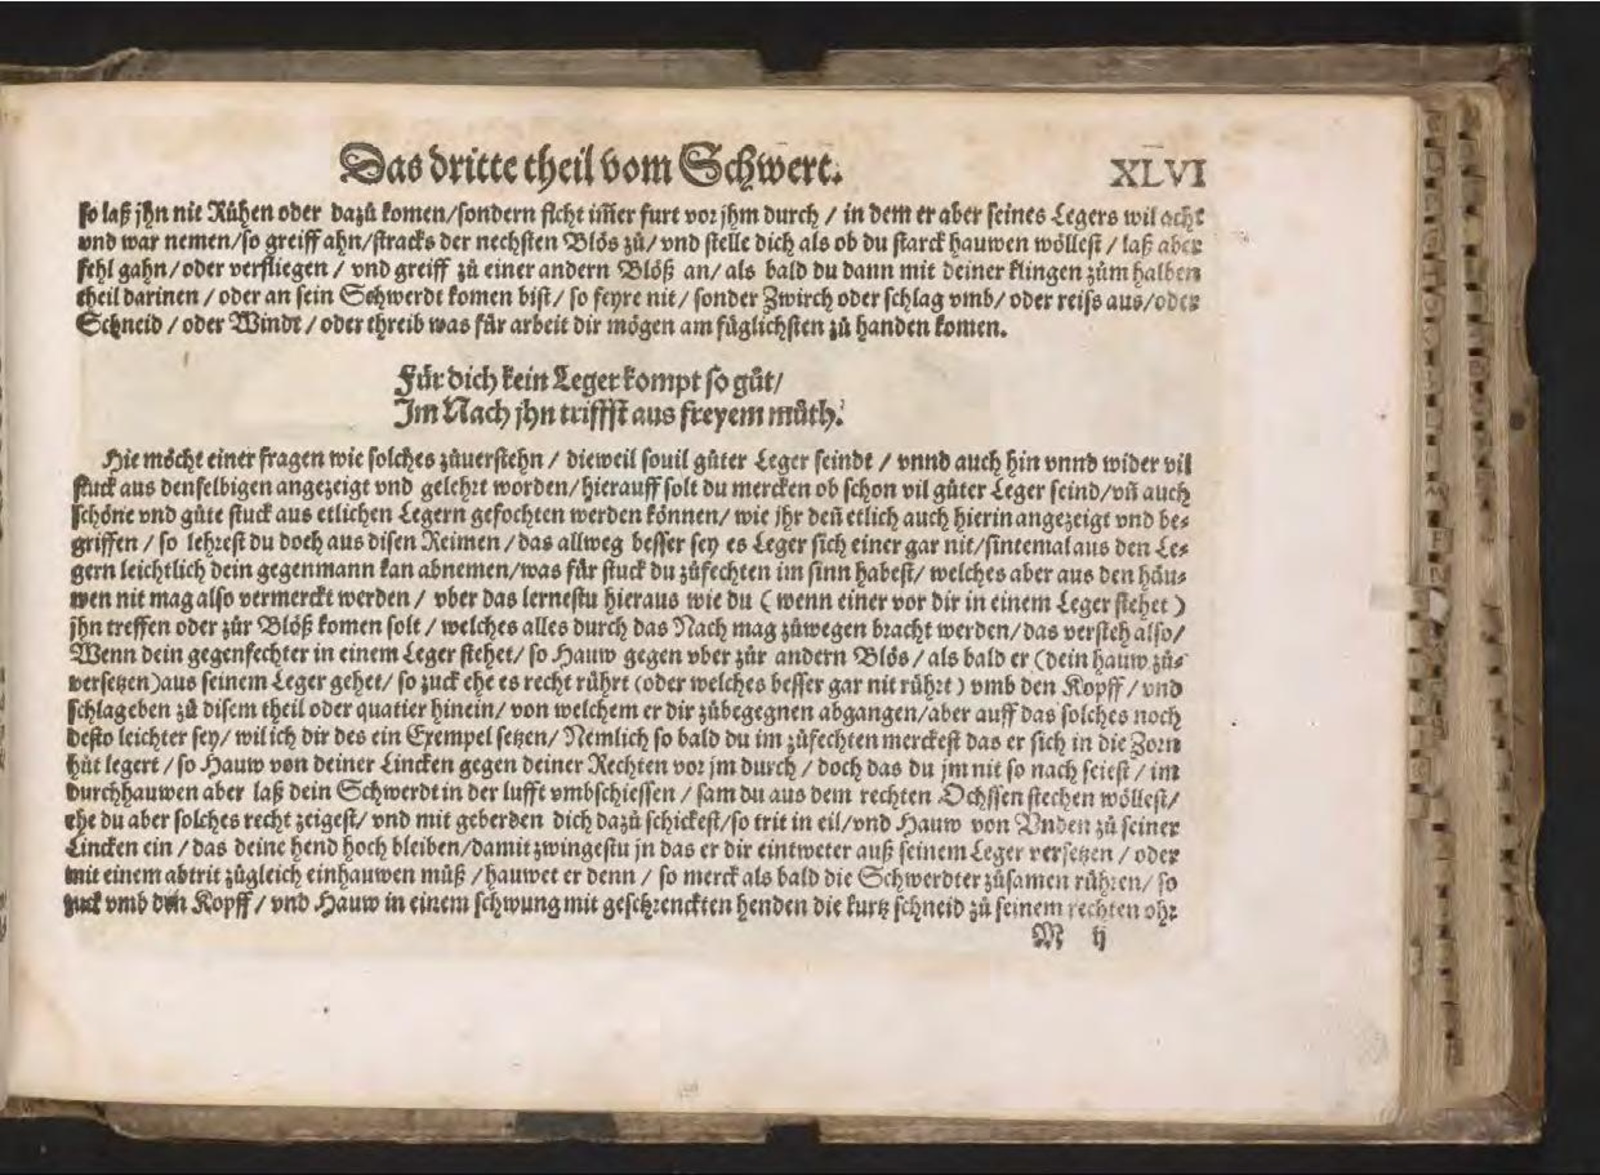 Das dritte theil vom Schwert. XLVI
so laß jhn nit Růhen oder dazů komen/sondern ficht im̃er furt vor jhm durch / in dem er aber seines Legers wil acht
vnd war nemen/so greiff ahn/stracks der nechsten Blös zů/ vnd stelle dich als ob du starck hauwen wöllest / laß aber
fehl gahn/oder verfliegen / vnd greiff zů einer andern Blöß an/ als bald du dann mit deiner klingen zům halben
theil darinen / oder an sein Schwerdt komen bist/ so feyre nit/ sonder Zwirch oder schlag vmb/ oder reiss aus/oder
Schneid / oder Windt / oder threib was für arbeit dir mögen am füglichsten zů handen komen.
Für dich kein Leger kompt so gůt/
Im Nach jhn triffst aus freyem můth.
Hie möcht einer fragen wie solches zůuerstehn / dieweil souil gůter Leger seindt / vnnd auch hin vnnd wider vil
stuck aus denselbigen angezeigt vnd gelehrt worden/ hierauff solt du mercken ob schon vil gůter Leger seind/vn̄ auch
schöne vnd gůte stuck aus etlichen Legern gefochten werden können/ wie jhr den̄ etlich auch hierin angezeigt vnd be-
griffen / so lehrest du doch aus disen Reimen / das allweg besser sey es Leger sich einer gar nit/sintemal aus den Le-
gern leichtlich dein gegenmann kan abnemen/was für stuck du zůfechten im sinn habest/ welches aber aus den häu-
wen nit mag also vermerckt werden / vber das lernestu hieraus wie du ( wenn einer vor dir in einem Leger stehet )
jhn treffen oder zůr Blöß komen solt / welches alles durch das Nach mag zůwegen bracht werden/das versteh also/
Wenn dein gegenfechter in einem Leger stehet/ so Hauw gegen vber zůr andern Blös / als bald er (dein hauw zů-
versetzen)aus seinem Leger gehet/ so zuck ehe es recht rührt (oder welches besser gar nit rührt ) vmb den Kopff / vnd
schlag eben zů disem theil oder quatier hinein/ von welchem er dir zůbegegnen abgangen/aber auff das solches noch
desto leichter sey/ wil ich dir des ein Exempel setzen/ Nemlich so bald du im zůfechten merckest das er sich in die Zorn
hůt legert / so Hauw von deiner Lincken gegen deiner Rechten vor jm durch / doch das du jm nit so nach seiest / im
durchhauwen aber laß dein Schwerdt in der lufft vmbschiessen / sam du aus dem rechten Ochssen stechen wöllest/
ehe du aber solches recht zeigest/ vnd mit geberden dich dazů schickest/so trit in eil/vnd Hauw von Vnden zů seiner
Lincken ein / das deine hend hoch bleiben/damit zwingestu jn das er dir eintweter auß seinem Leger versetzen / oder
mit einem abtrit zůgleich einhauwen můß / hauwet er denn / so merck als bald die Schwerdter zůsamen rühren/ so
zuck vmb den Kopff / vnd Hauw in einem schwung mit geschrenckten henden die kurtz schneid zů seinem rechten ohr
M ij